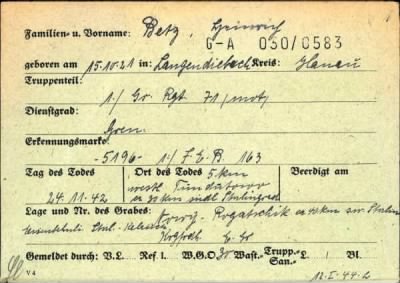 Familien- u. Vorname: Betz, Heinrich
G-A 030/0583
geboren am 15.10.21 in: Langendiebach Kreis: Hanau
Truppenteil:
1./ Gr. Rgt. 71 /mot/
Dienstgrad:
Gren.
Erkennungsmarke:
-5196- 1./ J.E.B. 163
Tag des Todes Ort des Todes Beerdigt am
5 km
24.11.42 westl. Tundutowo
südl. Stalingrad
Lage und Nr. des Grabes: Nowy-Rogatschik
Gemeldet durch: V.L. Ref I. W.G.O. Wast.- Trupp.- San.- L. Bl.
V 4